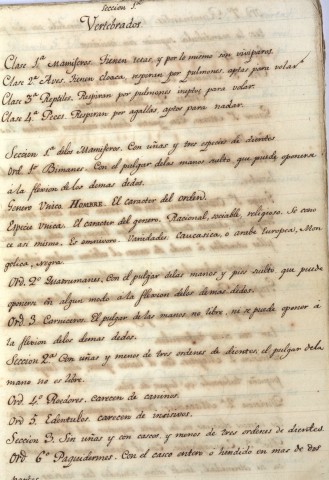 Sección 1ª
Vertebrados
Clase 1ª Mamiferos. Tienen tetas, y por lo mismo son viviparos.
Clase 2ª Aves. tienen cloaca, respiran por pulmones, aptas para volar.
Clase 3ª Reptiles. Respiran por pulmones ineptos para volar.
Clase 4ª Peces. Respiran por agallas, aptos para nadar.
Seccion 1ª delos Mamiferos. Con uñas y tres especies de dientes
Ord. 1º Bimanes. Con el pulgar delas manos suelto, que puede oponerse
á la flexion delos demas dedos.
Genero Unico. HOMBRE. El caracter del orden.
Especie Unica. El caracter del genero. Racional, sociable, religioso. Se cono
ce asi mismo. Es omnivoro. Variedades Caucasica, o arabe Europea, Mon
golica, Negra.
Ord. 2º Quatrumanes. Con el pulgar delas manos y pies suelto, que puede
oponerse en algun modo a la flexion delos demas dedos.
Ord. 3 Carniceros. El pulgar de las manos no libre, ni se puede oponer á
la flexion delos demas dedos.
Seccion 2ª Con uñas y menos de tres ordenes de dientes, el pulgar dela
mano no es libre.
Ord 4º Roedores. carecen de caninos.
Ord 5. Edentulos. carecen de incisivos.
Seccion 3. Sin uñas y con cascos, y menos de tres ordenes de dientes.
Ord. 6º Paquidermes. Con el casco entero ó hendido en mas de dos
partes.